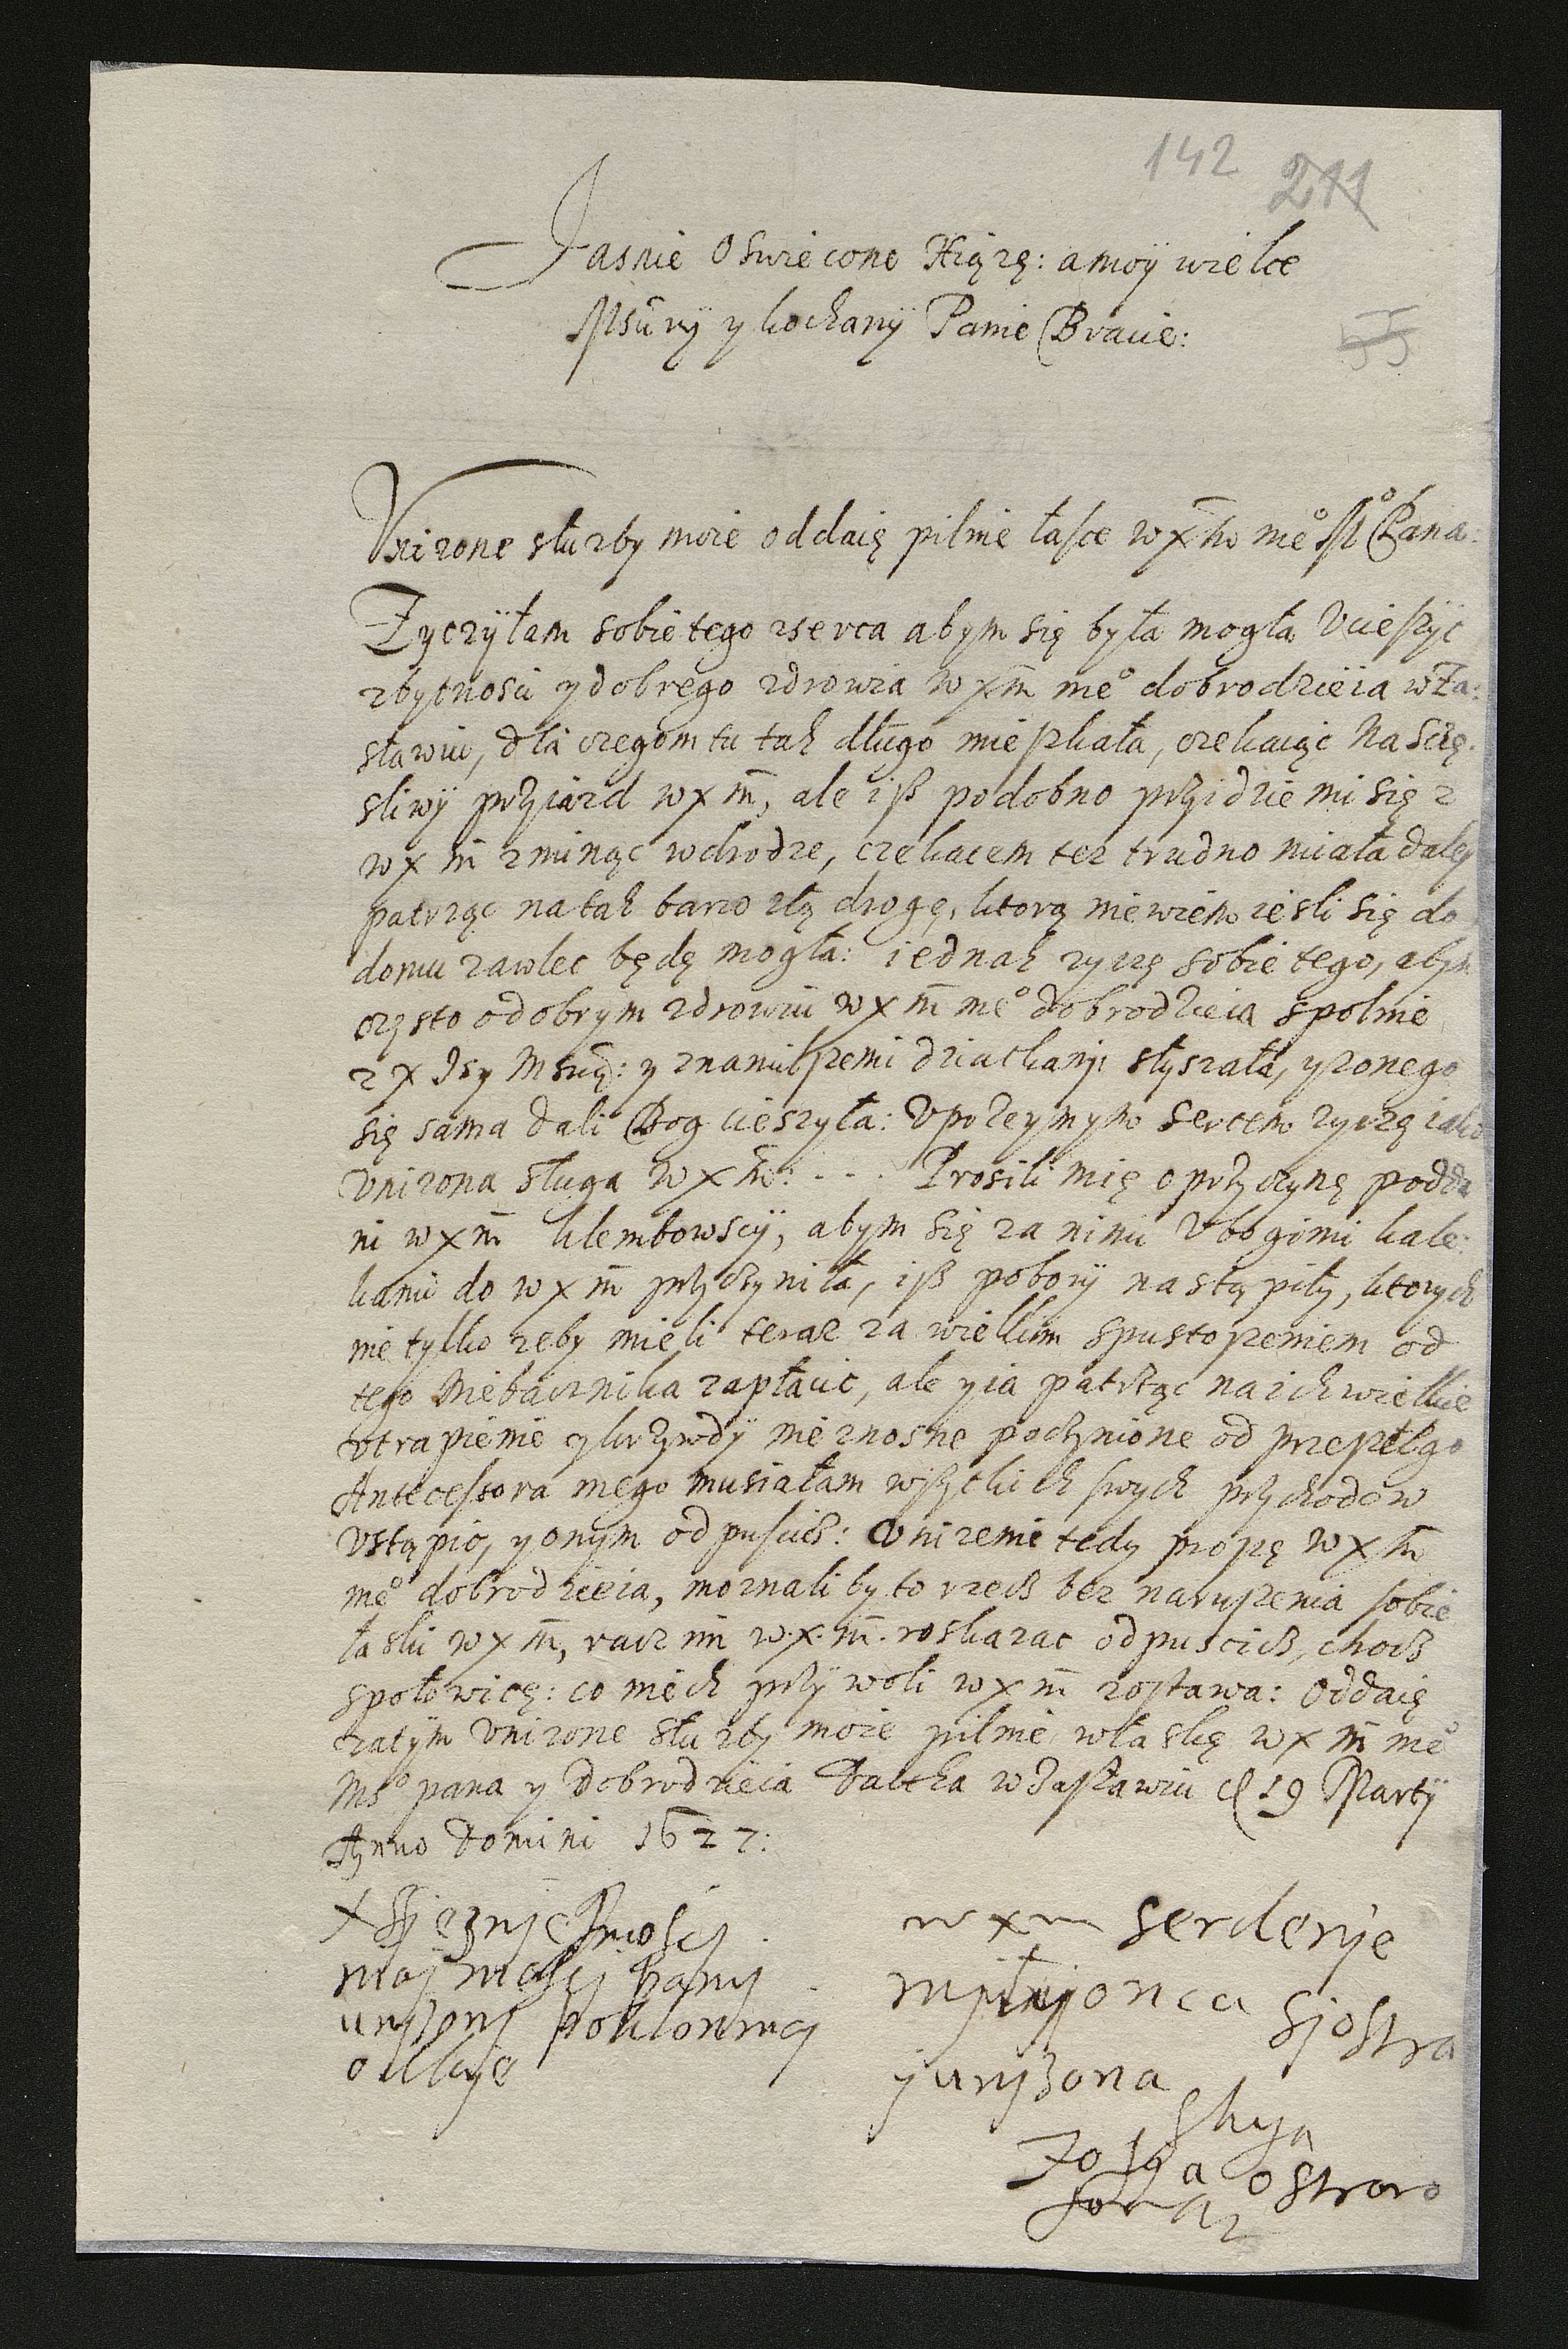 142 211
55
Jasnie Oswiecone Xiązę: a moÿ wielce
Msciwÿ y kochanÿ Panie Bracie:
Vnizone słuzby moie oddaię pilnie łasce w x m me° M° Pana:
Zyczÿłam sobie tego zserca abym się była mogła Vcieszÿc
zbytnosci y dobrego zdrowia w x m me° dobrodzieia wZa:
sławiu, dla czegom tu tak długo mieszkała, czekaiąc na scię:
sliwÿ przÿiazd w x m, ale isz podobno przÿidzie mi się z
w x m zminąc wdrodze, czekacem tez trudno miała daleÿ
patrząc na tak barzo złą drogę, ktorą niewiem iesli się do
domu zawlec będę mogła: iednak zyczę sobie tego, abym
często odobrym zdrowiu w x m me° dobrodzieia spolnie
z x Jey Mscią: y znamilszemi dziatkamÿ słyszała, yzonego
się sama dali Bog cieszyła: Vprzeymym sercem zyczą iako
Vnizona sługa w x m: - - - Prosili mię o przyczynę podda
ni w x m klembowscÿ, abym się za nimi Vbogimi kale:
kami do w x m przyczyniła, isz poborÿ nastąpiły, ktorych
nie tylko zeby mieli teraz za wielkim spustoszeniem od
tego Niebacznika zapłacic, ale y ia patrząc na ich wielkie
Vtrapienie y krzywdÿ nieznosne poczynione od przeszłego
Antecessora mego musiałam wszytkich swych przychodow
Vstąpic, y onÿm odpuscic: Vnizenie tedy proszę w x m
me° dobrodzieia, moznali by to rzecz bez naruszenia sobie
łaski w x m, racz im w.x.m. roskazac odpuscicz, chocz
społowicę: co niech przÿ woli w x m zostawa: Oddaię
zatÿm Vnizone słuzby moie pilnie właskę w x m me°
Ms° pana y Dobrodzieia Datka wZasławiu d 19 Martÿ
Anno Domini 1627:
Xsjęznje Jmoscj
mojmoscj panj
unjzonj poklonmoj
oddaję
w x m serdecnje
mjłujonca sjostra
j unjzona
sługa
Zofja ostroro